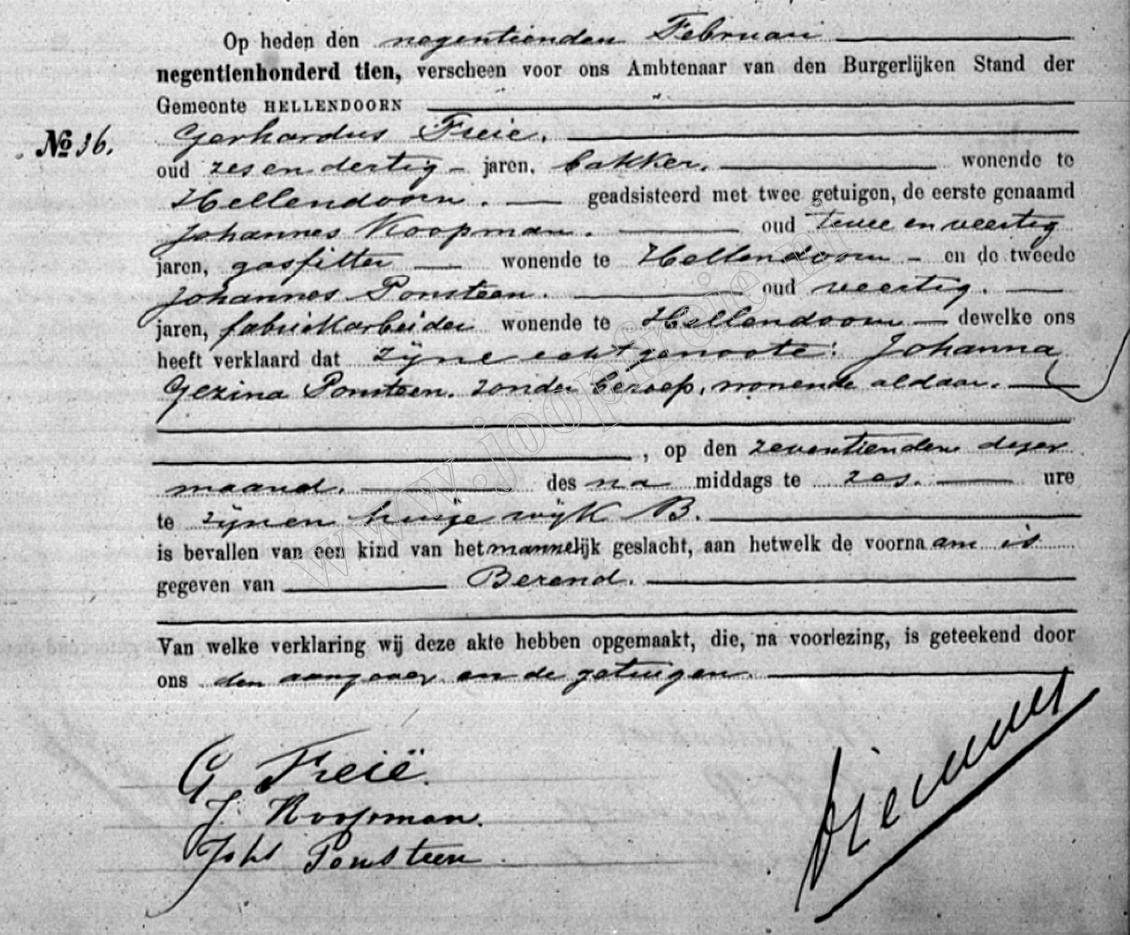 Op heden den negentienden Februari
negentienhonderd tien, verscheen voor ons Ambtenaar van den Burgerlijken Stand der
Gemeente HELLENDOORN
No 36. Gerhardus Freie.
oud zes en dertig jaren, bakker. wonende te
Hellendoorn. geadsisteerd met twee getuigen, de eerste genaamd
Johannes Koopman. oud twee en veertig
jaren, gasfitter wonende te Hellendoorn en de tweede
Johannes Ponsteen. oud veertig.
jaren, fabriekarbeider wonende te Hellendoorn dewelke ons
heeft verklaard dat zijne echtgenoote: Johanna
Gezina Ponsteen. zonder beroep, wonende aldaar.
, op den zeventienden dezer
maand. des na middags te zes. ure
te zijnen huize wijk B.
is bevallen van een kind van het mannelijk geslacht, aan hetwelk de voornaam is
gegeven van Berend.
Van welke verklaring wij deze akte hebben opgemaakt, die, na voorlezing, is geteekend door
ons den aangever en de getuigen.
G Freië.
J. Koopman.
Johs Ponsteen